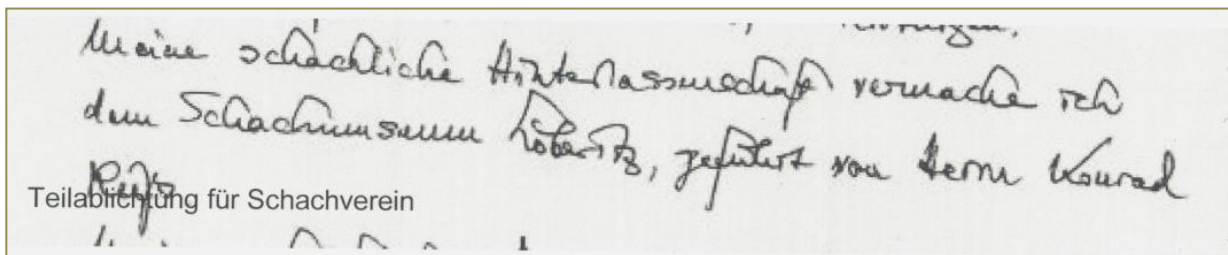 Meine schachliche Hinterlassenschaft vermache ich
dem Schachmuseum Löberitz, geführt von Herrn Konrad
Reiß
Teilablichtung für Schachverein